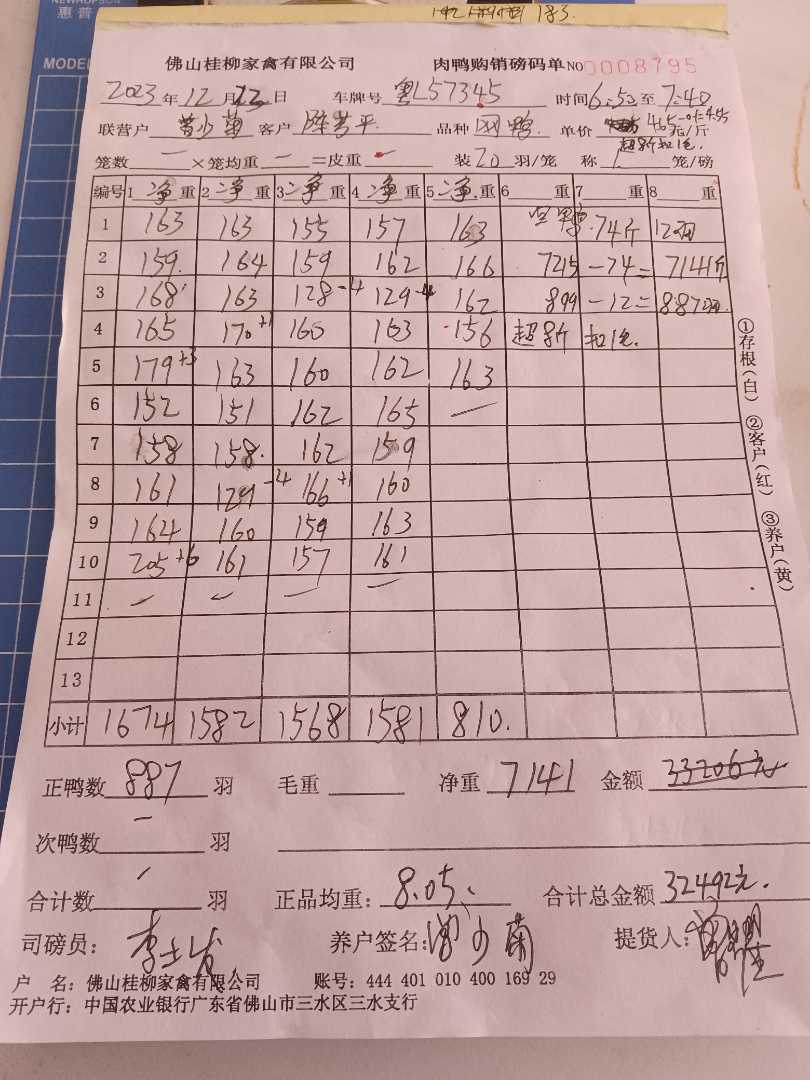 惠普
MODEL
183
佛山桂柳家禽有限公司 肉鸭购销磅码单 NO 0008795
2023年12月23日 车牌号 粤L57345 时间6:50至7:40
联营户 客户 品种 单价 4.65-0.1=4.55 元/斤
超8斤扣1毛
笼数 一 ×笼均重 一 =皮重 一 装 20 羽/笼 称 1 笼/磅
编号 1 净 重 2 净 重 3 净 重 4 净 重 5 净 重 6 重 7 重 8 重
1 163 163 155 157 163 74斤 12羽
2 159 164 159 162 166 7215 -74= 7141斤
3 168 163 128-4 129-4 162 899 -12= 887羽
4 165 170+1 160 163 156 超8斤 扣1毛
5 179+3 163 160 162 163
6 152 151 162 165 —
7 158 158 162 159
8 161 129-4 166+1 160
9 164 160 159 163
10 205+6 161 157 161
11 — — — —
12
13
小计 1674 1582 1568 1581 810
正鸭数 887 羽 毛重 净重 7141 金额 33206元
次鸭数 一 羽
合计数 羽 正品均重: 8.05 合计总金额 32492元
司磅员: 养户签名: 提货人:
户 名: 佛山桂柳家禽有限公司 账号: 444 401 010 400 169 29
开户行: 中国农业银行广东省佛山市三水区三水支行
①存根(白) ②客户(红) ③养户(黄)